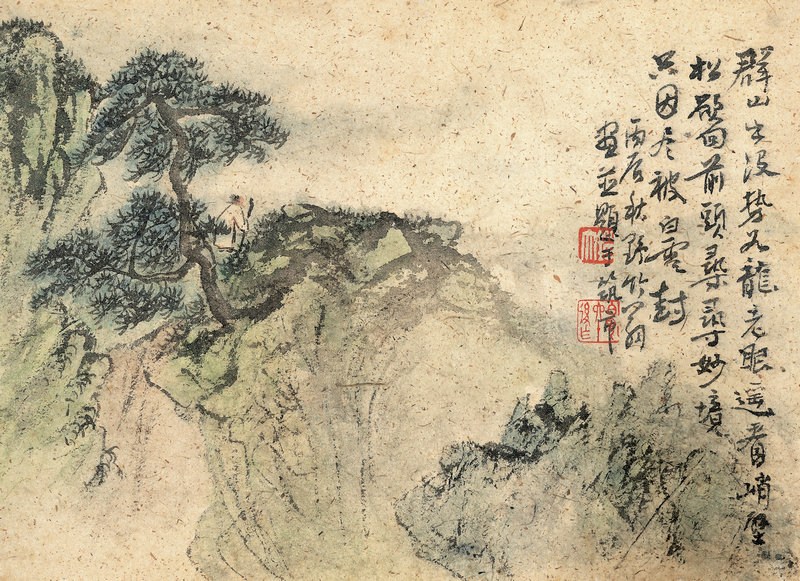 群山出没势如龍老眼遥看峭壁
松欲向前頭尋妙境
只因尽被白雲封
丙辰秋野竹
畫並題于筑